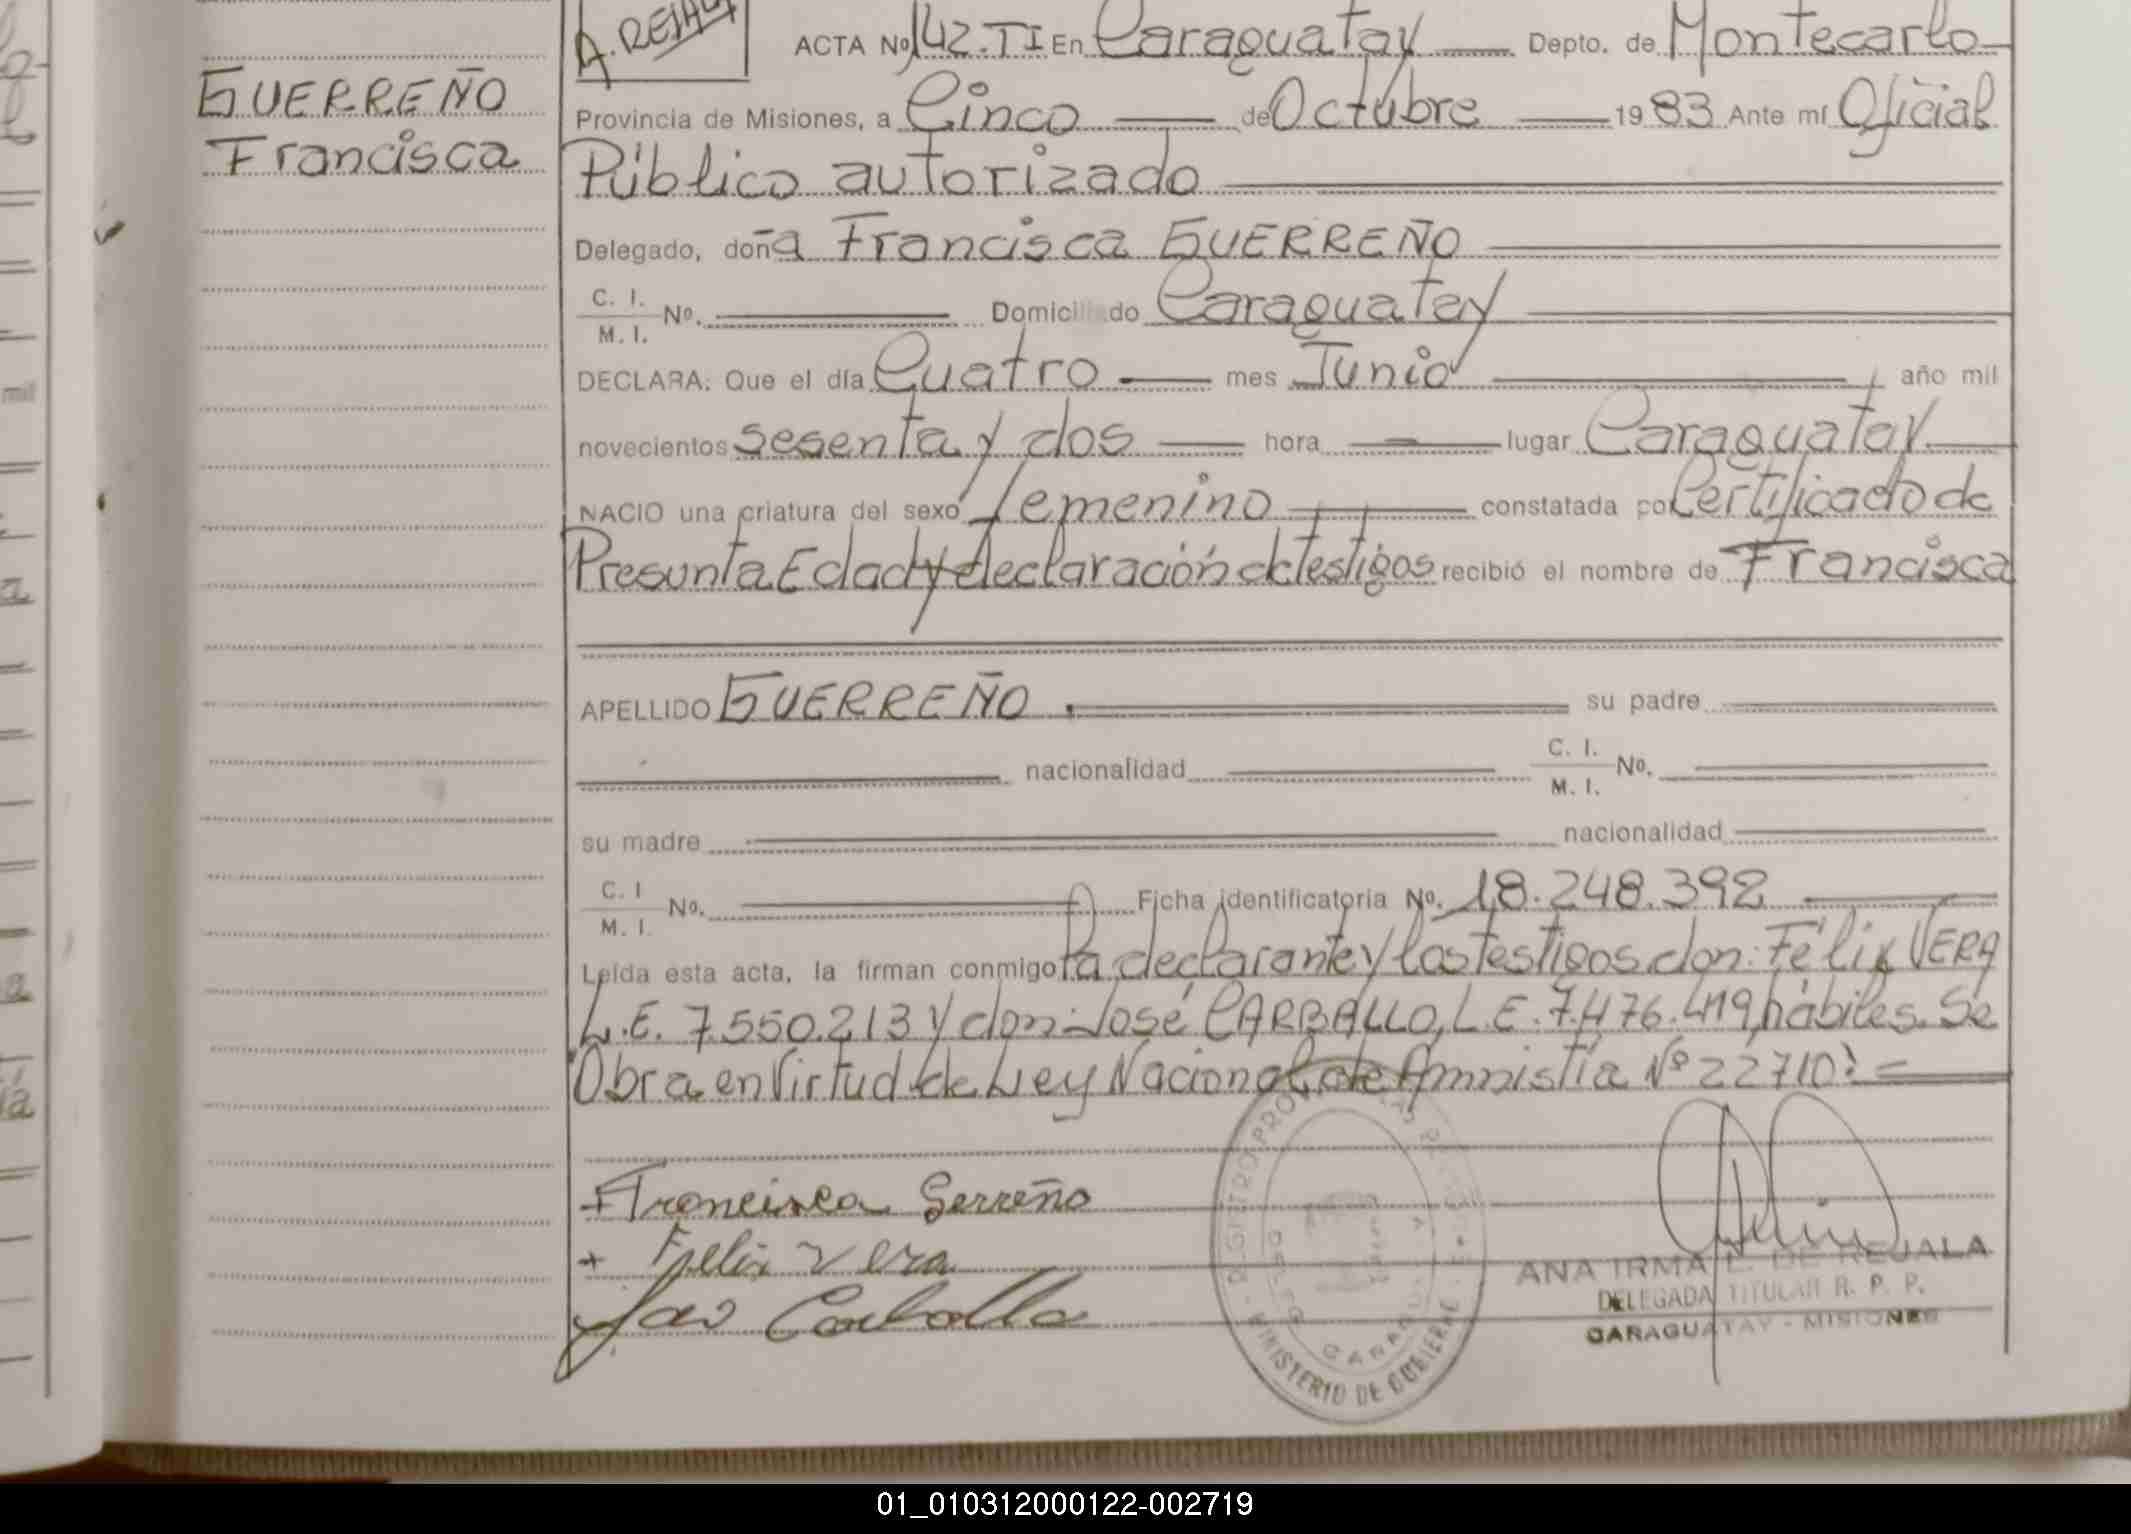 A. REJALA
ACTA Nº 142.TI En Caraguatay Depto. de Montecarlo
GUERREÑO
Francisca
Provincia de Misiones, a Cinco de Octubre 1983 Ante mí Oficial
Público autorizado
Delegado, doña Francisca GUERREÑO
C. I.
M. I. Nº. Domiciliado Caraguatay
DECLARA: Que el día Cuatro mes Junio año mil
novecientos sesenta y dos hora lugar Caraguatay
NACIO una criatura del sexo femenino constatada por Certificado de
Presunta Edad y declaración de testigos recibió el nombre de Francisca
APELLIDO GUERREÑO su padre
nacionalidad C. I.
M. I. Nº.
su madre nacionalidad
C. I
M. I. Nº. Ficha identificatoria Nº. 18.248.392
Leída esta acta, la firman conmigo la declarante y los testigos don: Félix VERA
L.E. 7.550.213 y don: José CARBALLO, L.E. 7.476.419, hábiles. Se
Obra en Virtud de Ley Nacional de Amnistía Nº 22710:=
Francisca Gerreño
Felix Vera
Jose Carballo
MINISTERIO DE GOBIERNO
ANA IRMA L. DE REJALA
DELEGADA TITULAR R. P. P.
CARAGUATAY - MISIONES
mil
01_010312000122-002719